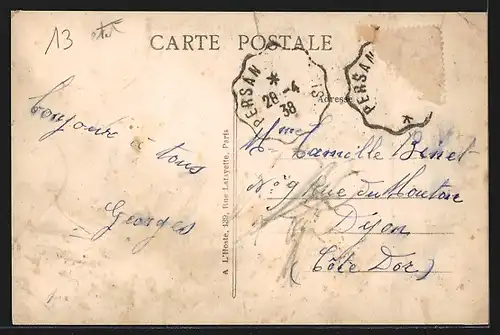 13
CARTE POSTALE
PERSAN
*
28-4
38
PERSAN
*
Adresse
Bonjour à tous
Georges
A L'Hoste, 139, Rue Lafayette, Paris
Camille Binet
No 9 Rue du Mouton
Dijon
(Côte Dor)